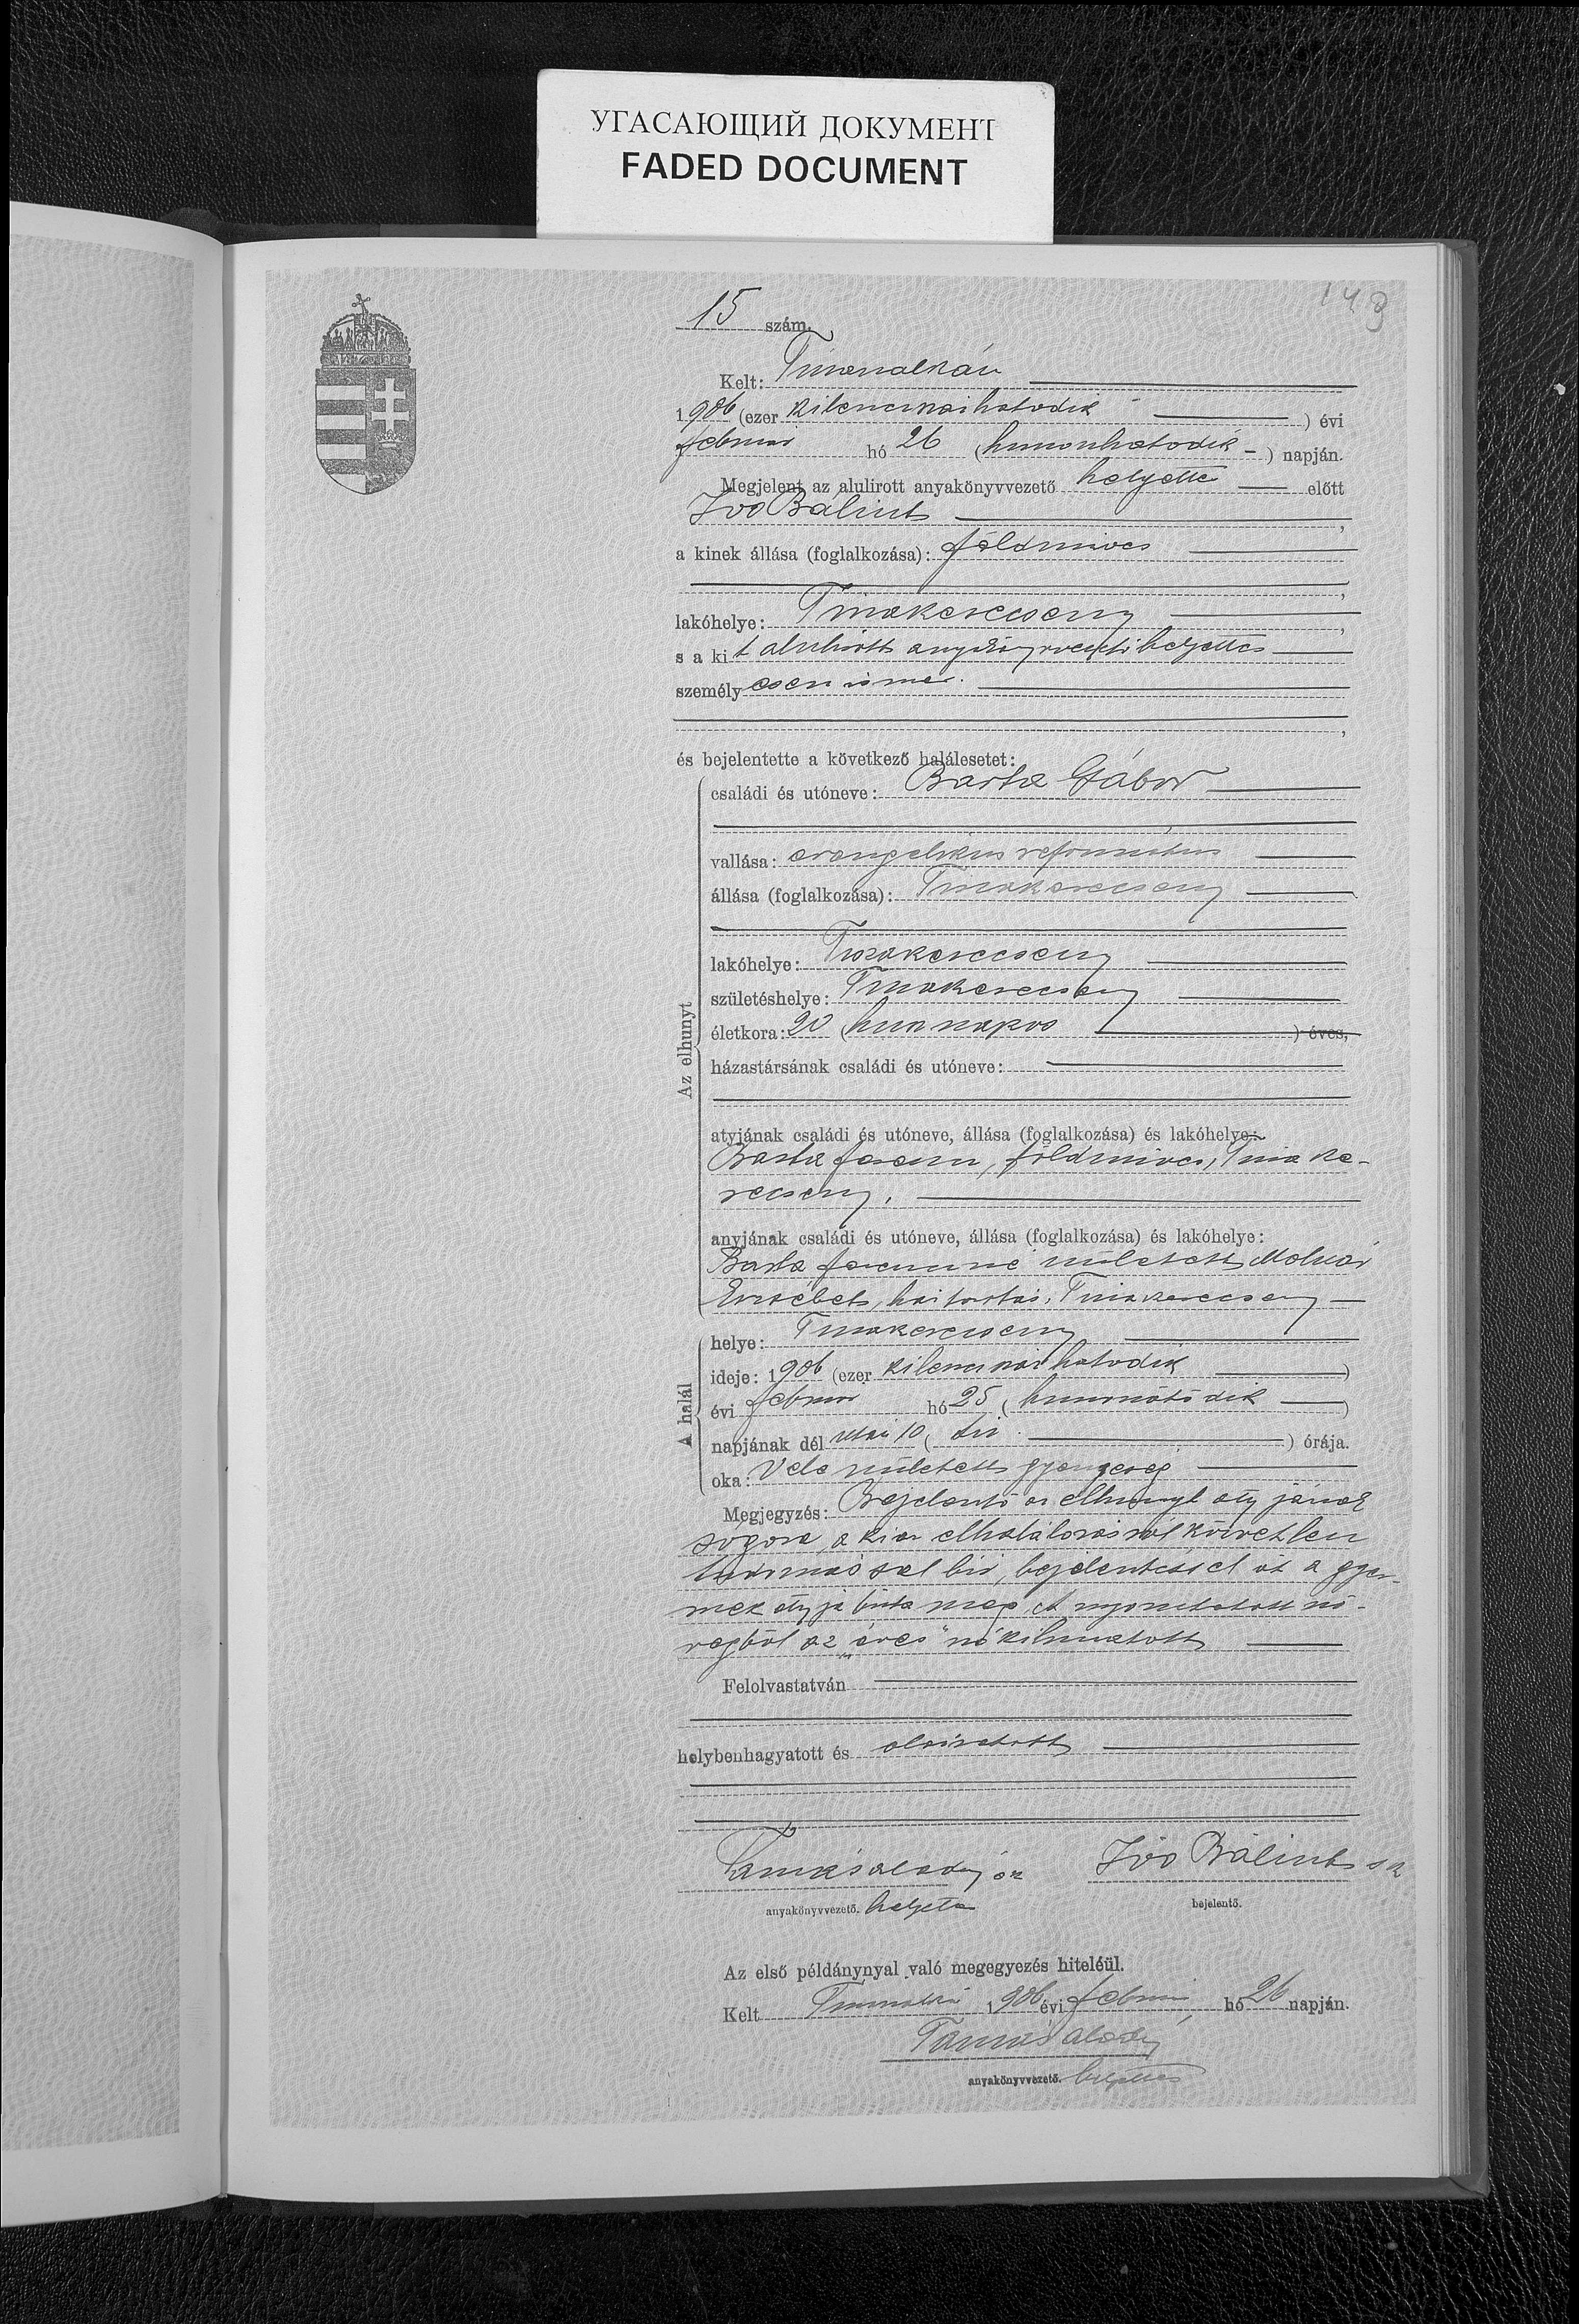 УГАСАЮЩИЙ ДОКУМЕНТ
FADED DOCUMENT
149
15 szám.
Kelt: Tiszaszalkán
1906 (ezer kilenczszázhatodik ) évi
február hó 26 (huszonhatodik ) napján.
Megjelent az alulirott anyakönyvvezető helyettes előtt
Ivó Bálint ,
a kinek állása (foglalkozása): földmives
,
lakóhelye: Tiszakerecseny ,
s a kit alulirott anyakönyvvezető helyettes
személyesen ismer.
,
és bejelentette a következő halálesetet:
Az elhunyt
családi és utóneve: Barta Gábor
vallása: evangelikus református
állása (foglalkozása): Tiszakerecseny
lakóhelye: Tiszakerecseny
születéshelye: Tiszakerecseny
életkora: 20 (husz napos ) éves,
házastársának családi és utóneve:
atyjának családi és utóneve, állása (foglalkozása) és lakóhelye:
Barta Ferencz, földmives, Tiszake-
recseny.
anyjának családi és utóneve, állása (foglalkozása) és lakóhelye:
Barta Ferenczné született Molnár
Erzsébet, háztartás, Tiszakerecseny
A halál
helye: Tiszakerecseny
ideje: 1906 (ezer kilenczszázhatodik )
évi február hó 25 (huszonötödik )
napjának dél után 10 ( tiz ) órája.
oka: Vele született gyengeség
Megjegyzés: Bejelentő az elhunyt atyjának
sógora, a ki az elhalálozásról közvetlen
tudomással bir, bejelentéssel őt a gyer-
mek atyja bizta meg. A nyomtatott szö-
vegből az "éves" szó kihuzatott
Felolvastatván
helybenhagyatott és aláiratott
Tamás Aladár sk Ivó Bálint sk
anyakönyvvezető. helyettes bejelentő.
Az első példánynyal való megegyezés hiteléül.
Kelt Tiszaszalka 1906 évi február hó 26 napján.
Tamás Aladár
anyakönyvvezető. helyettes